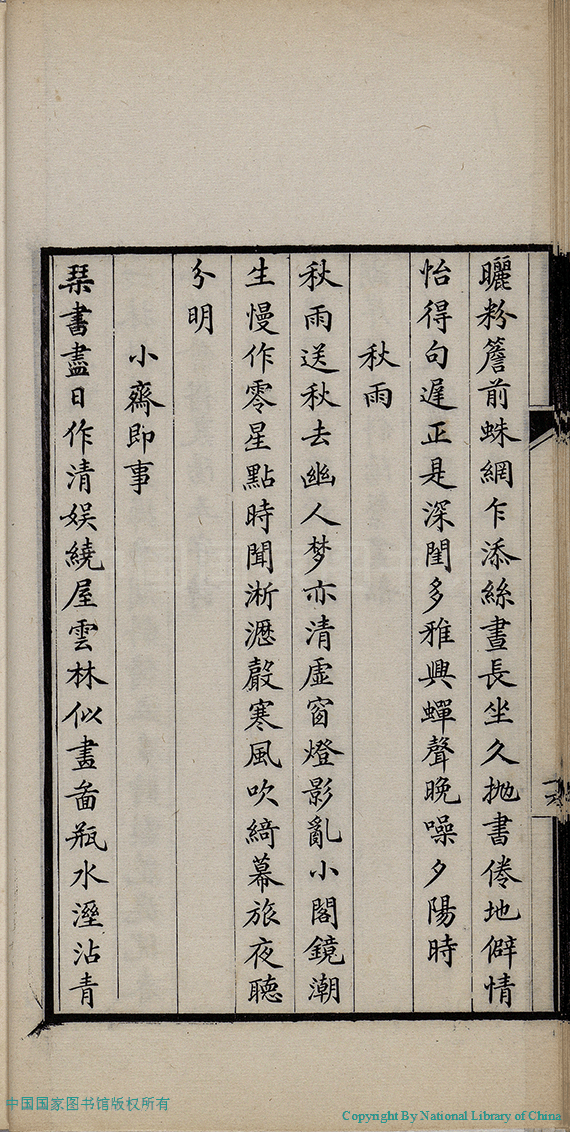 曬粉簷前蛛網乍添絲晝長坐久抛書倦地僻情
怡得句遲正是深閨多雅興蟬聲晚噪夕陽時
秋雨
秋雨送秋去幽人梦亦清虛窗燈影亂小閣鏡潮
生慢作零星點時聞淅瀝聲寒風吹綺幕旅夜聽
分明
小齋即事
琹書盡日作清娱繞屋雲林似畫啚瓶水溼沾青
中国国家图书馆版权所有
Copyright By National Library of China